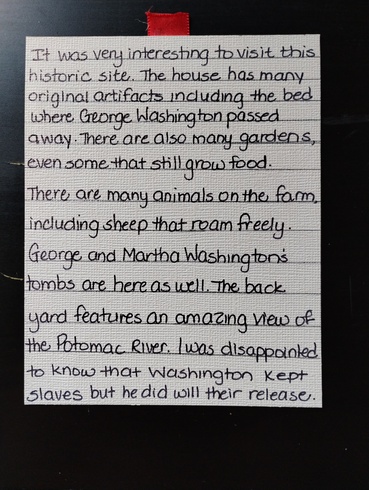 It was very interesting to visit this
historic site. The house has many
original artifacts including the bed
where George Washington passed
away. There are also many gardens,
even some that still grow food.
There are many animals on the farm,
including sheep that roam freely.
George and Martha Washington's
tombs are here as well. The back
yard features an amazing view of
the Potomac River. I was disappointed
to know that Washington kept
slaves but he did will their release.